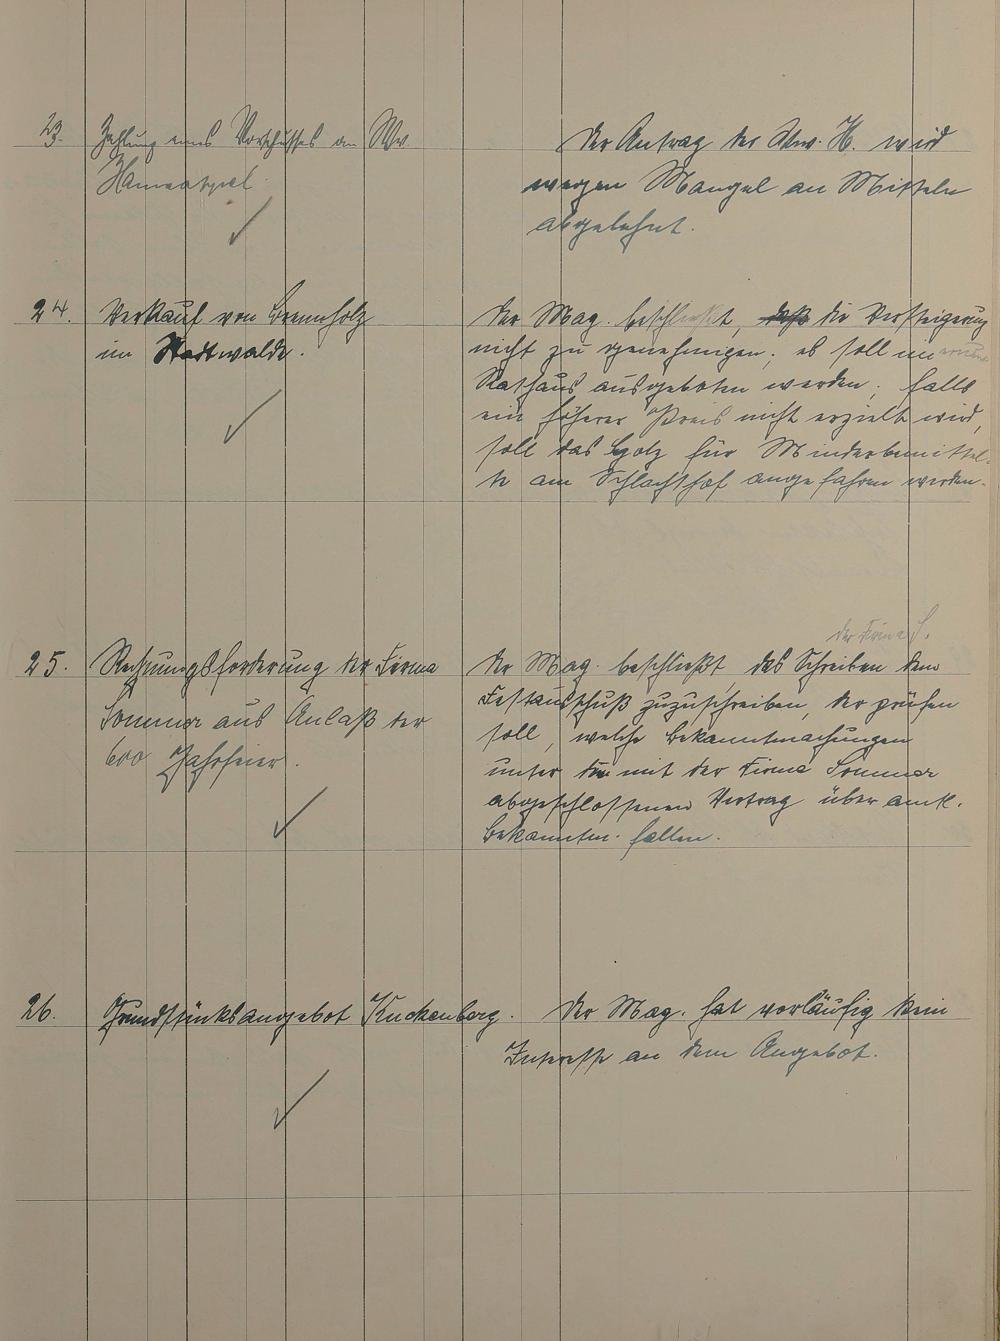 23. Zahlung eines Vorschusses an Ww.
Der Antrag der Ww. H. wird
wegen Mangel an Mitteln
abgelehnt.
24. Verkauf von Brennholz
im Stadtwalde.
Der Mag. beschließt, daß die Versteigerung
nicht zu genehmigen; es soll im
Rathaus ausgeboten werden; falls
ein höherer Preis nicht erzielt wird,
soll das Holz für Minderbemittel-
te am Schlachthof angefahren werden.
25. Rechnungsforderung der Firma
Sommer aus Anlaß der
600 Jahrfeier.
der Firma S.
Der Mag. beschließt, das Schreiben dem
Festausschuß zuzuschreiben, der prüfen
soll, welche Bekanntmachungen
unter den mit der Firma Sommer
abgeschlossenen Vertrag über amtl.
Bekanntm. fallen.
26. Grundstücksangebot Kuckenberg.
Der Mag. hat vorläufig kein
Interesse an dem Angebot.